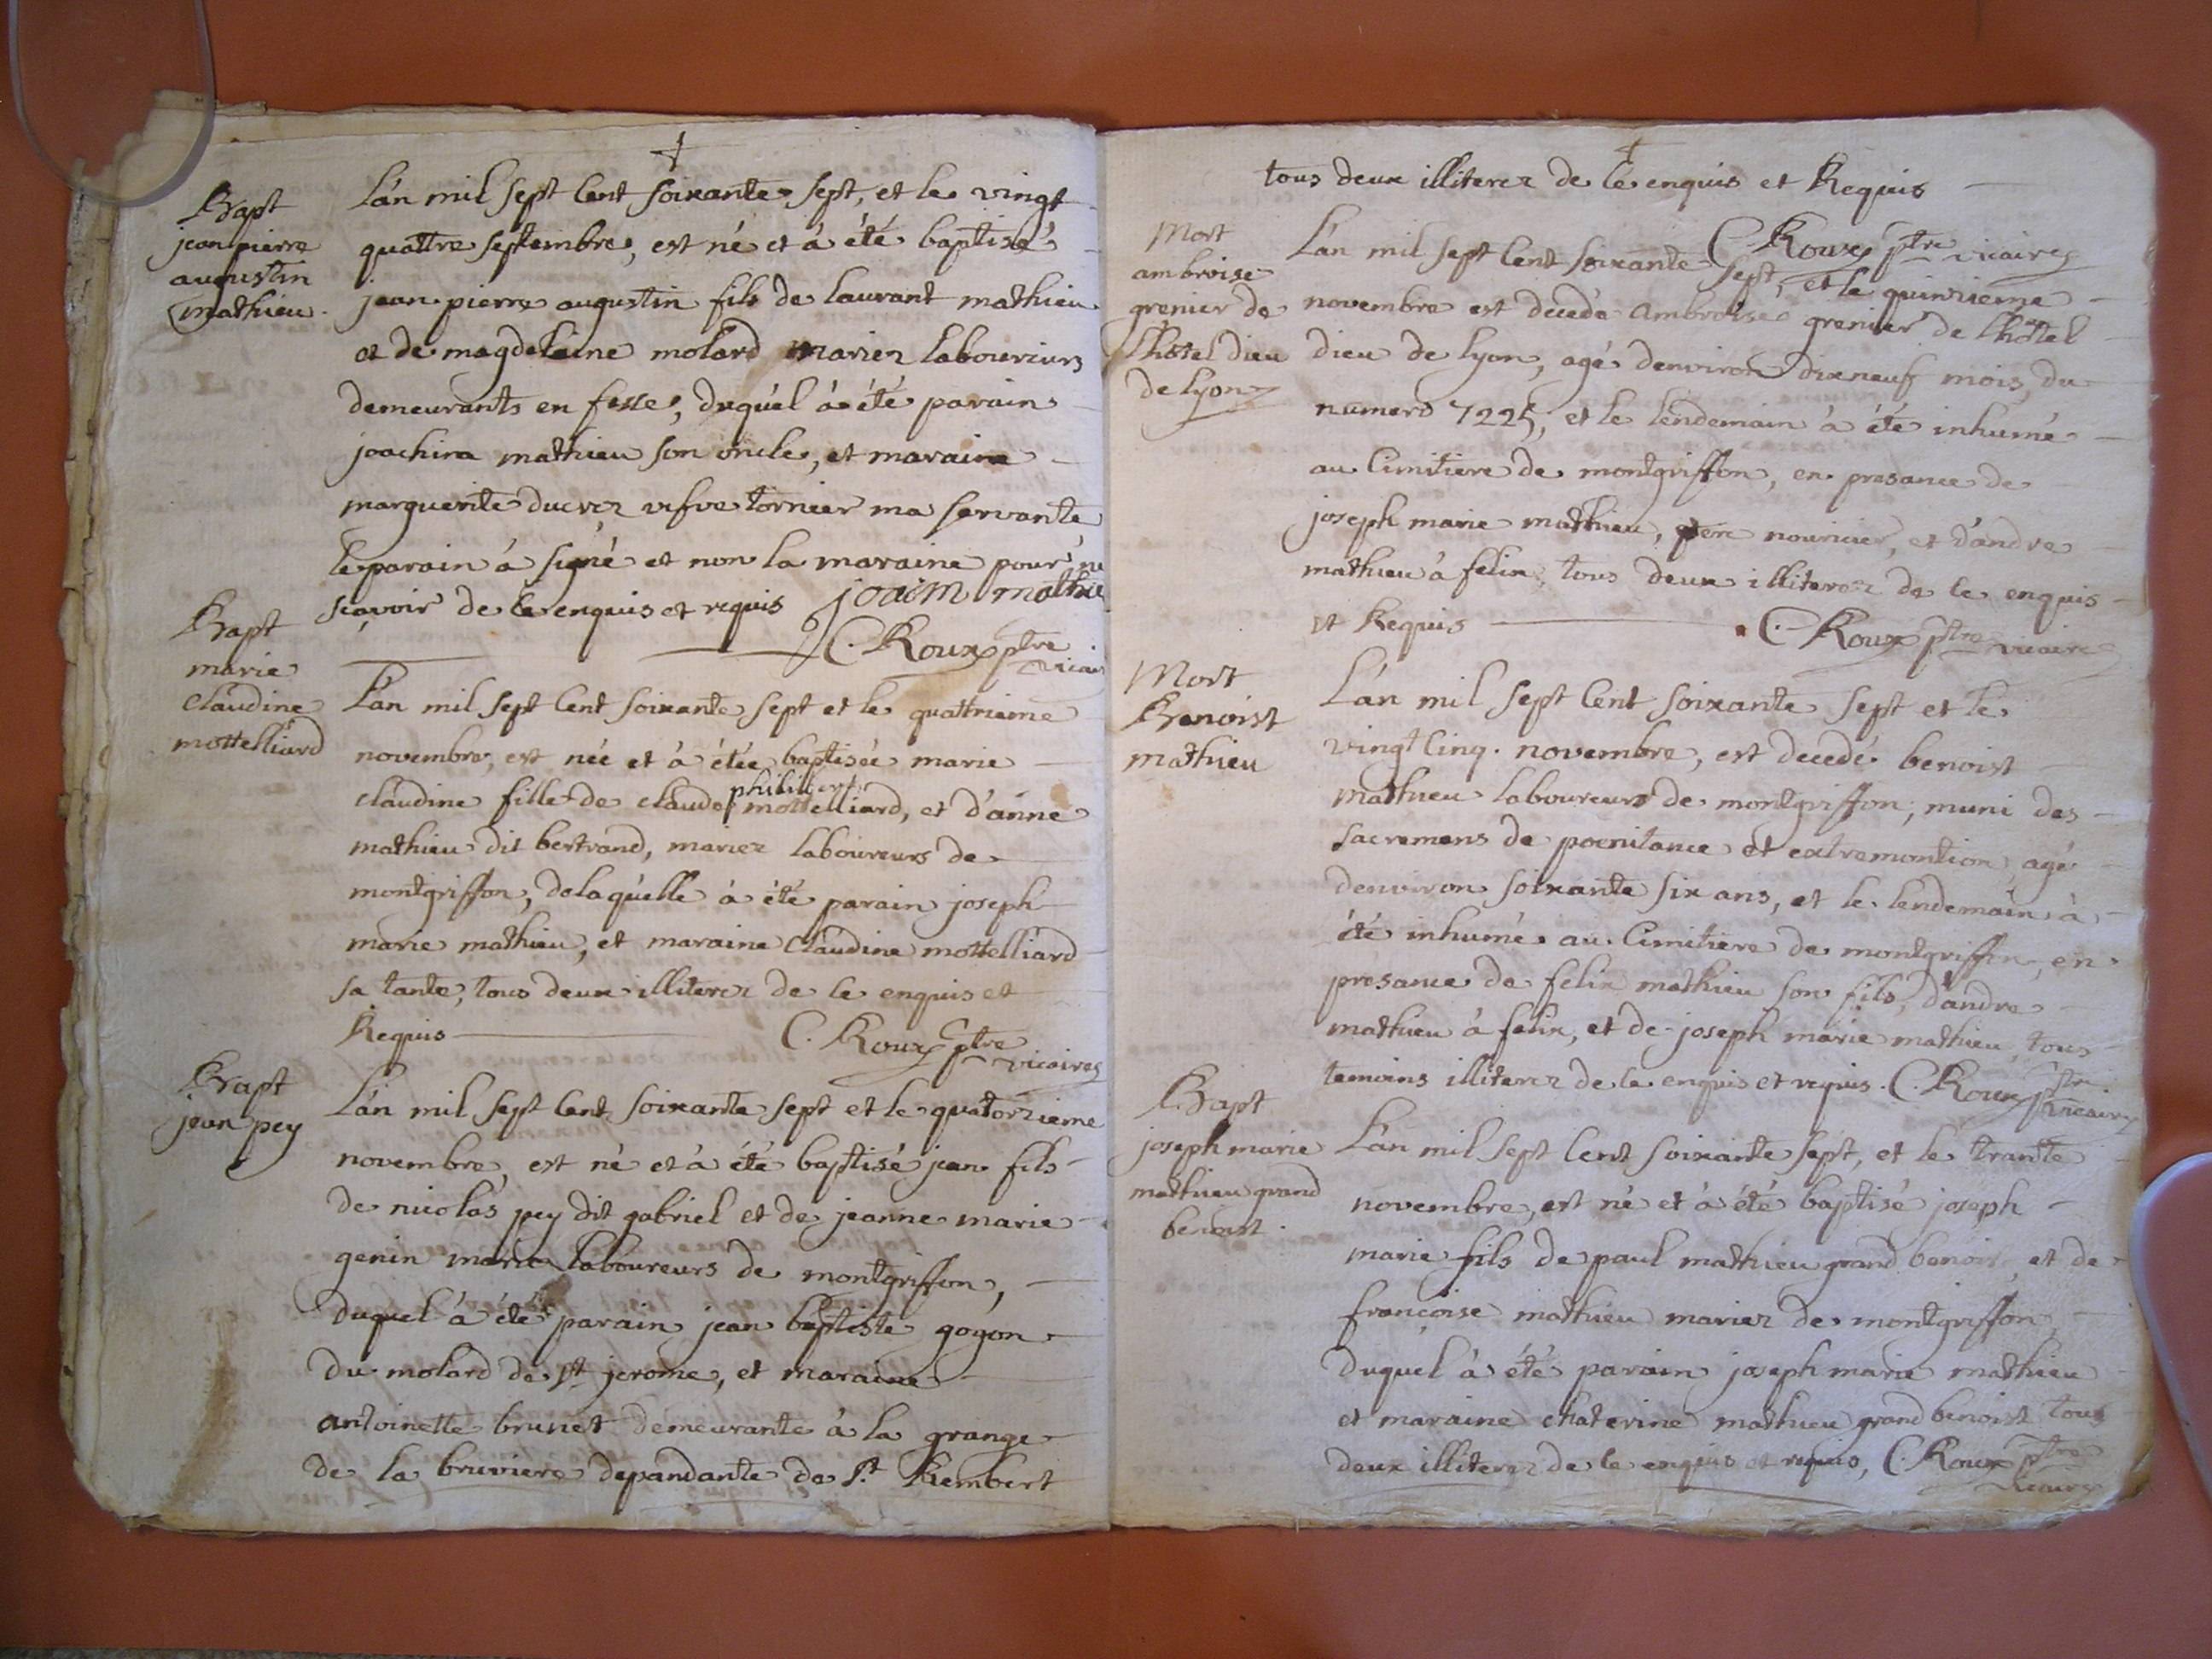 Bapt
jean pierre
augustin
mathieu.
Lán mil sept Cent soixante sept, et le vingt
quattre septembre, est né et à été baptisé
jean pierre augustin fils de laurant mathieu
et de magdelaine molard mariez laboureurs
demeurants en fosse, duquél à été parain
joachim mathieu son oncle, et maraine
marguerite ducrez vefve tornier ma servante
le parain à signé et non la maraine pour ne
sçavoir de ce enquis et requis joacim mathie
C. Roux ptre
vicaire
Bapt
marie
claudine
mottelliard
Lán mil sept Cent soixante sept et le quattrieme
novembre, est née et à étée baptisée marie
philibert
claudine fille de claude mottelliard, et d'anne
mathieu dit bertrand, mariez laboureurs de
montgriffon, delaquélle à été parain joseph
marie mathieu, et maraine Claudine mottelliard
sa tante, tous deux illiterez de ce enquis et
Requis C. Roux ptre
vicaire
Bapt
jean pey
Lán mil sept Cent soixante sept et le quatorzieme
novembre, est né et à été baptisé jean fils
de nicolas pey dit gabriel et de jeanne marie
genin mariez laboureurs de montgriffon,
duquel à été parain jean baptiste gogon
du molard de st jerome, et maraine
antoinette brunet demeurante à la grange
de la bruviere depandante de St. Rembert
tous deux illiterez de ce enquis et Requis
C. Roux ptre vicaire
Mort
ambroise
grenier de
lhotel dieu
de lyon
Lán mil sept Cent soixante sept, et le quinzieme
novembre est decedé ambroise grenier de lhôtel
dieu de lyon, agé denviron dixneuf mois, du
numero 7225, et le lendemain à été inhumé
au Cimitiere de montgriffon, en presance de
joseph marie mathieu, pere nouricier, et d'andre
mathieu à felix, tous deux illiterez de ce enquis
et Requis C. Roux ptre vicaire
Mort
Benoist
mathieu
Lán mil sept Cent soixante sept et le
vingt Cinq. novembre, est decedé benoist
mathieu laboureur de montgriffon, muni des
sacremens de poenitance et extremontion, agé
denviron soixante six ans, et le lendemain à
été inhumé au Cimitiere de montgriffon, en
presance de felix mathieu son fils, d'andre
mathieu à felix, et de joseph marie mathieu, tous
temoins illiterez de ce enquis et requis. C. Roux ptre
vicaire
Bapt
joseph marie
mathieu grand
benoist.
Lán mil sept Cent soixante sept, et le trante
novembre, est né et à été baptisé joseph
marie fils de paul mathieu grand benoist, et de
françoise mathieu mariez de montgriffon,
duquel à été parain joseph marie mathieu
et maraine chaterine mathieu grand benoist tous
deux illiterez de ce enquis et requis, C. Roux ptre
vicaire